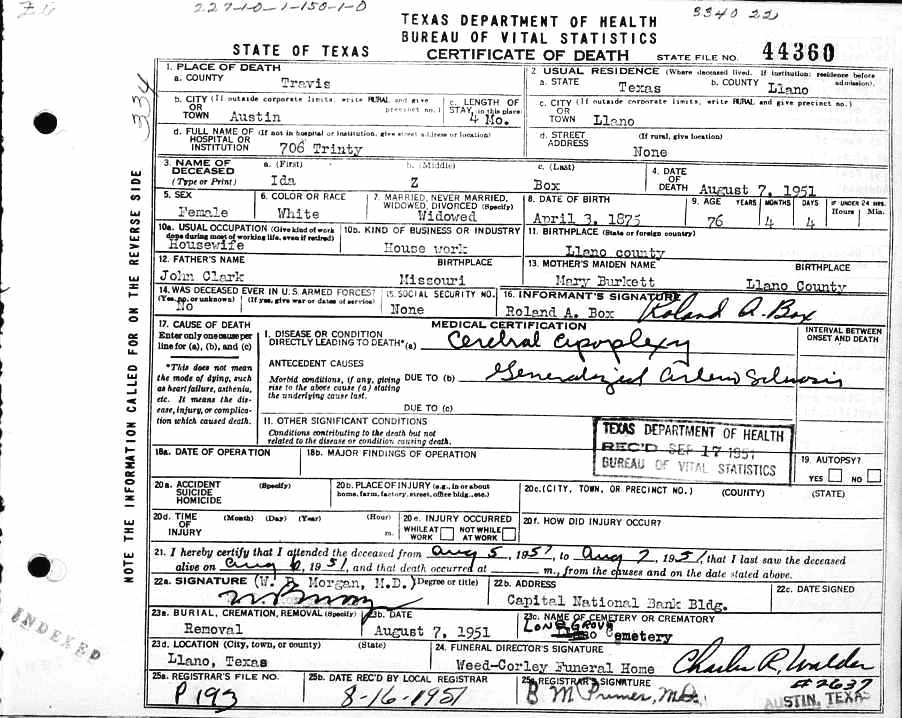 227-1-0-1-150-1-0
3340 22
TEXAS DEPARTMENT OF HEALTH
BUREAU OF VITAL STATISTICS
STATE OF TEXAS
CERTIFICATE OF DEATH
STATE FILE NO. 44360
334
NOTE THE INFORMATION CALLED FOR ON THE REVERSE SIDE
1. PLACE OF DEATH
a. COUNTY Travis
2 USUAL RESIDENCE (Where deceased lived. If institution: residence before admission).
a. STATE Texas b. COUNTY Llano
b. CITY (If outside corporate limits, write RURAL and give precinct no.)
OR TOWN Austin
c. LENGTH OF STAY (in the place) 4 Mo.
c. CITY (If outside corporate limits, write RURAL and give precinct no.)
OR TOWN Llano
d. FULL NAME OF (If not in hospital or institution, give street address or location)
HOSPITAL OR INSTITUTION 706 Trinty
d. STREET ADDRESS (If rural, give location) None
3. NAME OF DECEASED (Type or Print)
a. (First) Ida
b. (Middle) Z
c. (Last) Box
4. DATE OF DEATH August 7, 1951
5. SEX Female
6. COLOR OR RACE White
7. MARRIED, NEVER MARRIED, WIDOWED, DIVORCED (Specify) Widowed
8. DATE OF BIRTH April 3. 1875
9. AGE YEARS MONTHS DAYS IF UNDER 24 HRS. Hours Min.
76 4 4
10a. USUAL OCCUPATION (Give kind of work done during most of working life, even if retired) Housewife
10b. KIND OF BUSINESS OR INDUSTRY House work
11. BIRTHPLACE (State or foreign country) Llano county
12. FATHER'S NAME BIRTHPLACE
John Clark Missouri
13. MOTHER'S MAIDEN NAME BIRTHPLACE
Mary Burkett Llano County
14. WAS DECEASED EVER IN U.S. ARMED FORCES?
(Yes, no, or unknown) (If yes, give war or dates of service)
No
15. SOCIAL SECURITY NO. None
16. INFORMANT'S SIGNATURE
Roland A. Box Roland A. Box
17. CAUSE OF DEATH
Enter only one cause per line for (a), (b), and (c)
*This does not mean the mode of dying, such as heart failure, asthenia, etc. It means the disease, injury, or complication which caused death.
MEDICAL CERTIFICATION
INTERVAL BETWEEN ONSET AND DEATH
I. DISEASE OR CONDITION DIRECTLY LEADING TO DEATH*(a) Cerebral Apoplexy
ANTECEDENT CAUSES
Morbid conditions, if any, giving rise to the above cause (a) stating the underlying cause last.
DUE TO (b) Generalized Arterio Sclerosis
DUE TO (c)
II. OTHER SIGNIFICANT CONDITIONS
Conditions contributing to the death but not related to the disease or condition causing death.
TEXAS DEPARTMENT OF HEALTH
REC'D SEP 17 1951
BUREAU OF VITAL STATISTICS
18a. DATE OF OPERATION
18b. MAJOR FINDINGS OF OPERATION
19. AUTOPSY?
YES NO
20a. ACCIDENT SUICIDE HOMICIDE (Specify)
20b. PLACE OF INJURY (e.g., in or about home, farm, factory, street, office bldg., etc.)
20c. (CITY, TOWN, OR PRECINCT NO.) (COUNTY) (STATE)
20d. TIME OF INJURY (Month) (Day) (Year) (Hour) m.
20e. INJURY OCCURRED
WHILE AT WORK NOT WHILE AT WORK
20f. HOW DID INJURY OCCUR?
21. I hereby certify that I attended the deceased from Aug 5, 1951, to Aug 7, 1951, that I last saw the deceased
alive on Aug 6, 1951, and that death occurred at m., from the causes and on the date stated above.
22a. SIGNATURE (W. B. Morgan, M.D.) (Degree or title)
22b. ADDRESS Capital National Bank Bldg.
22c. DATE SIGNED
23a. BURIAL, CREMATION, REMOVAL (Specify) Removal
23b. DATE August 7, 1951
23c. NAME OF CEMETERY OR CREMATORY
LONG GROVE Cemetery
23d. LOCATION (City, town, or county) (State)
Llano, Texas
24. FUNERAL DIRECTOR'S SIGNATURE
Weed-Corley Funeral Home Charles R. Walden
#2637
25a. REGISTRAR'S FILE NO. P 193
25b. DATE REC'D BY LOCAL REGISTRAR 8-16-1951
25c REGISTRAR'S SIGNATURE B M Primer, M.D.
AUSTIN, TEXAS
INDEXED